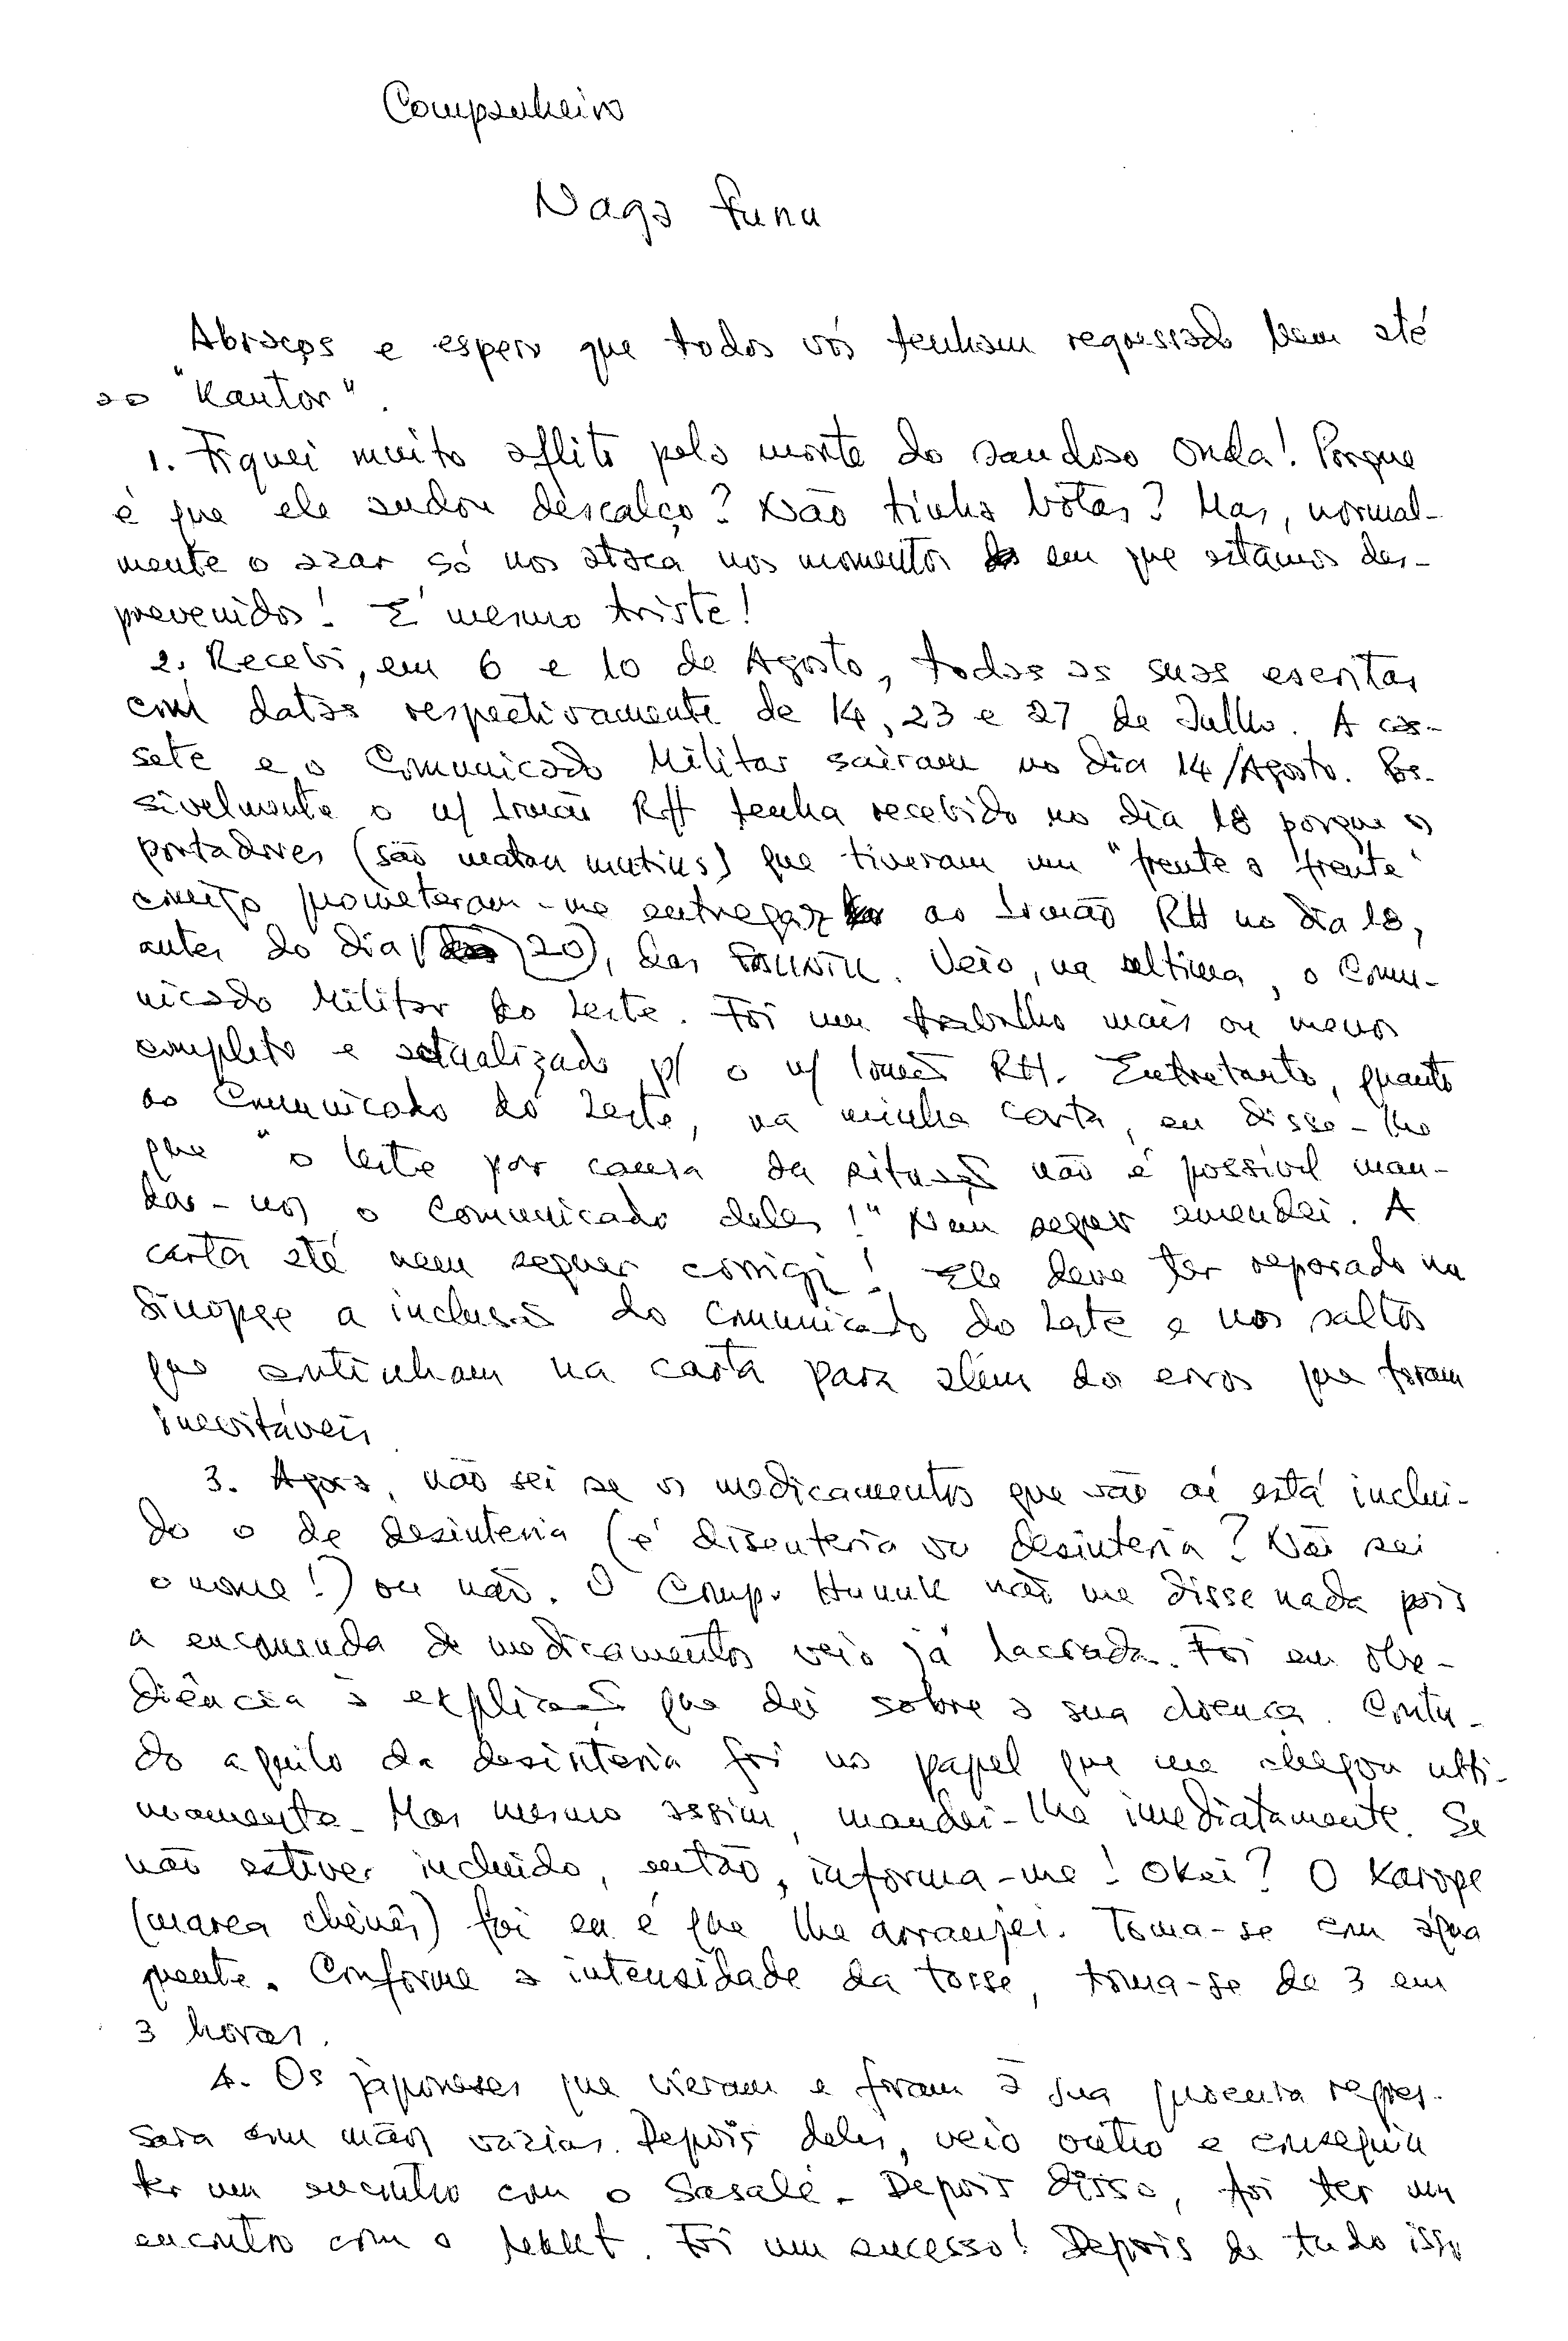 Companheiro
Naga funu
Abraços e espero que todos vós tenham regressado bem até
ao "Kantor".
1. Fiquei muito aflito pela morte do saudoso Onda! Porque
é que ele andou descalço? Não tinha botas? Mas, normal-
mente o azar só nos ataca nos momentos em que estamos des-
prevenidos! É mesmo triste!
2. Recebi, em 6 e 10 de Agosto, todas as suas escritas
com datas respectivamente de 14, 23 e 27 de Julho. A cas-
sete e o Comunicado Militar sairam no dia 14/Agosto. Pos-
sivelmente o n/ Irmão RH tenha recebido no dia 18 porque os
portadores (são matan mutius) que tiveram um "frente a frente"
comigo prometeram-me entregar ao Irmão RH no dia 18,
antes do dia (20), das . Veio, na ultima, o Comu-
nicado Militar do Leste. Foi um trabalho mais ou menos
completo e actualizado p/ o n/ Irmão RH. Entretanto, quanto
ao Comunicado do Leste, na minha carta, eu disse-lhe
que "o leste por causa da situação não é possível man-
dar-nos o comunicado deles!" Nem sequer emendei. A
carta até nem sequer corrigi! Ele deve ter reparado na
Sinopse a inclusão do comunicado do Leste e nos saltos
que continham na carta para além dos erros que foram
inevitáveis
3. Agora, não sei se os medicamentos que vão aí está inclui-
do o de desinteria (é disenteria ou desinteria? Não sei
o nome!) ou não. O Comp. Hunuk não me disse nada pois
a encomenda de medicamentos veio já lacrada. Foi em obe-
diência à explicação que dei sobre a sua doença. Contu-
do aquilo da desinteria foi no papel que me chegou ulti-
mamente. Mas mesmo assim, mandei-lhe imediatamente. Se
não estiver incluido, então, informa-me! Okei? O Xarope
(marca chênês) foi eu é que lhe arranjei. Toma-se com água
quente. Conforme a intensidade da tosse, toma-se de 3 em
3 horas.
4. Os japoneses que vieram e foram à sua procura regres-
sara com mãos vazias. Depois deles, veio outro e conseguiu
ter um encontro com o Sasale. Depois disso, foi ter um
encontro com o . Foi um sucesso! Depois de tudo isso